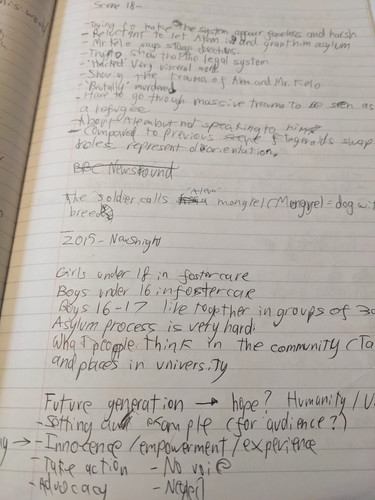 Scene 18-
- Trying to make the system appear ameless and harsh
- Reluctant to let Alem in and grant him asylum
- Mr Kelo says stage directions.
- Trying show trap the legal system
- "Hatred very visceral word
- Showing the trauma of Alem and Mr. Kelo
- "Brutally murdered
- Have to go through massive trauma to be seen as
a refugee
- About Alem but not speaking to him
- Compared to previous scene Fitzgeralds swap
roles represent disorientation.
BBC Newsround
The soldier calls Alem a mongrel (Mongrel = dog wi
breeds
2015 - Newsnight
Girls under 18 in foster care
Boys under 16 in foster care
Boys 16-17 live together in groups of 3
Asylum process is very hard.
What people think in the community (Ta
and places in university
Future generation → hope? Humanity /
- Setting an example (for audience?)
→ - Innocence / empowerment / experience
- Take action - No voice
- Advocacy